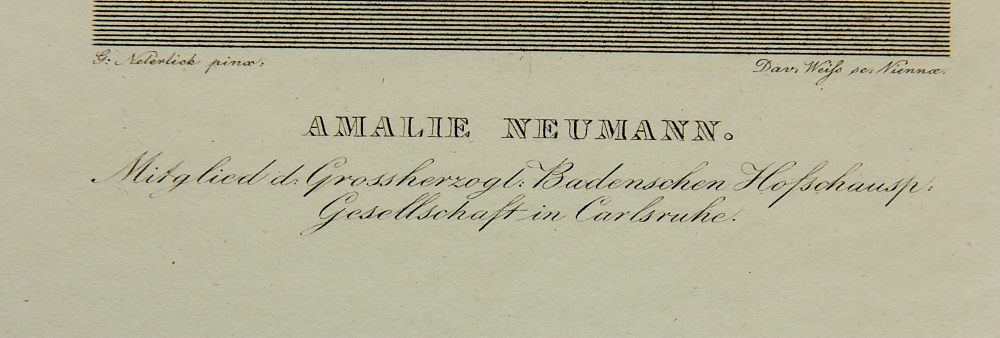 G: Neterlick pinx: Dav. Weiſs sc: Viennæ.
AMALIE NEUMANN.
Mitglied d: Grossherzogl: Badenschen Hofschausp:
Gesellschaft in Carlsruhe.